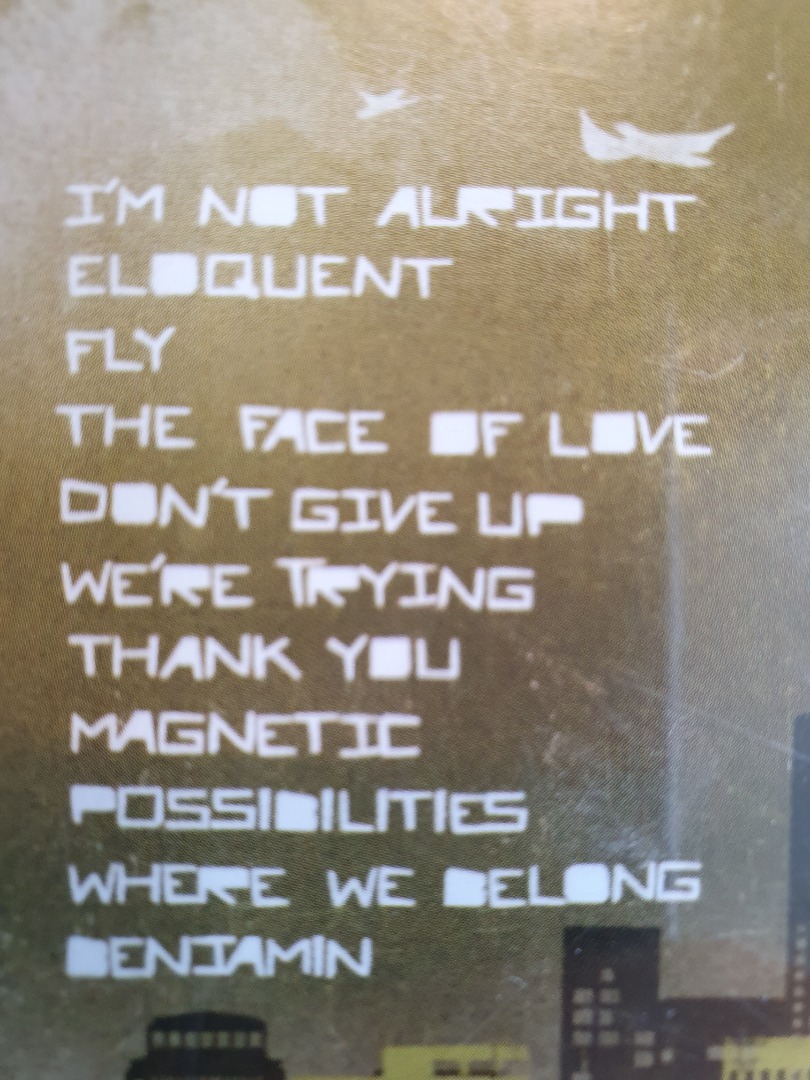 I'M NOT ALRIGHT
ELOQUENT
FLY
THE FACE OF LOVE
DON'T GIVE UP
WE'RE TRYING
THANK YOU
MAGNETIC
POSSIBILITIES
WHERE WE BELONG
BENJAMIN